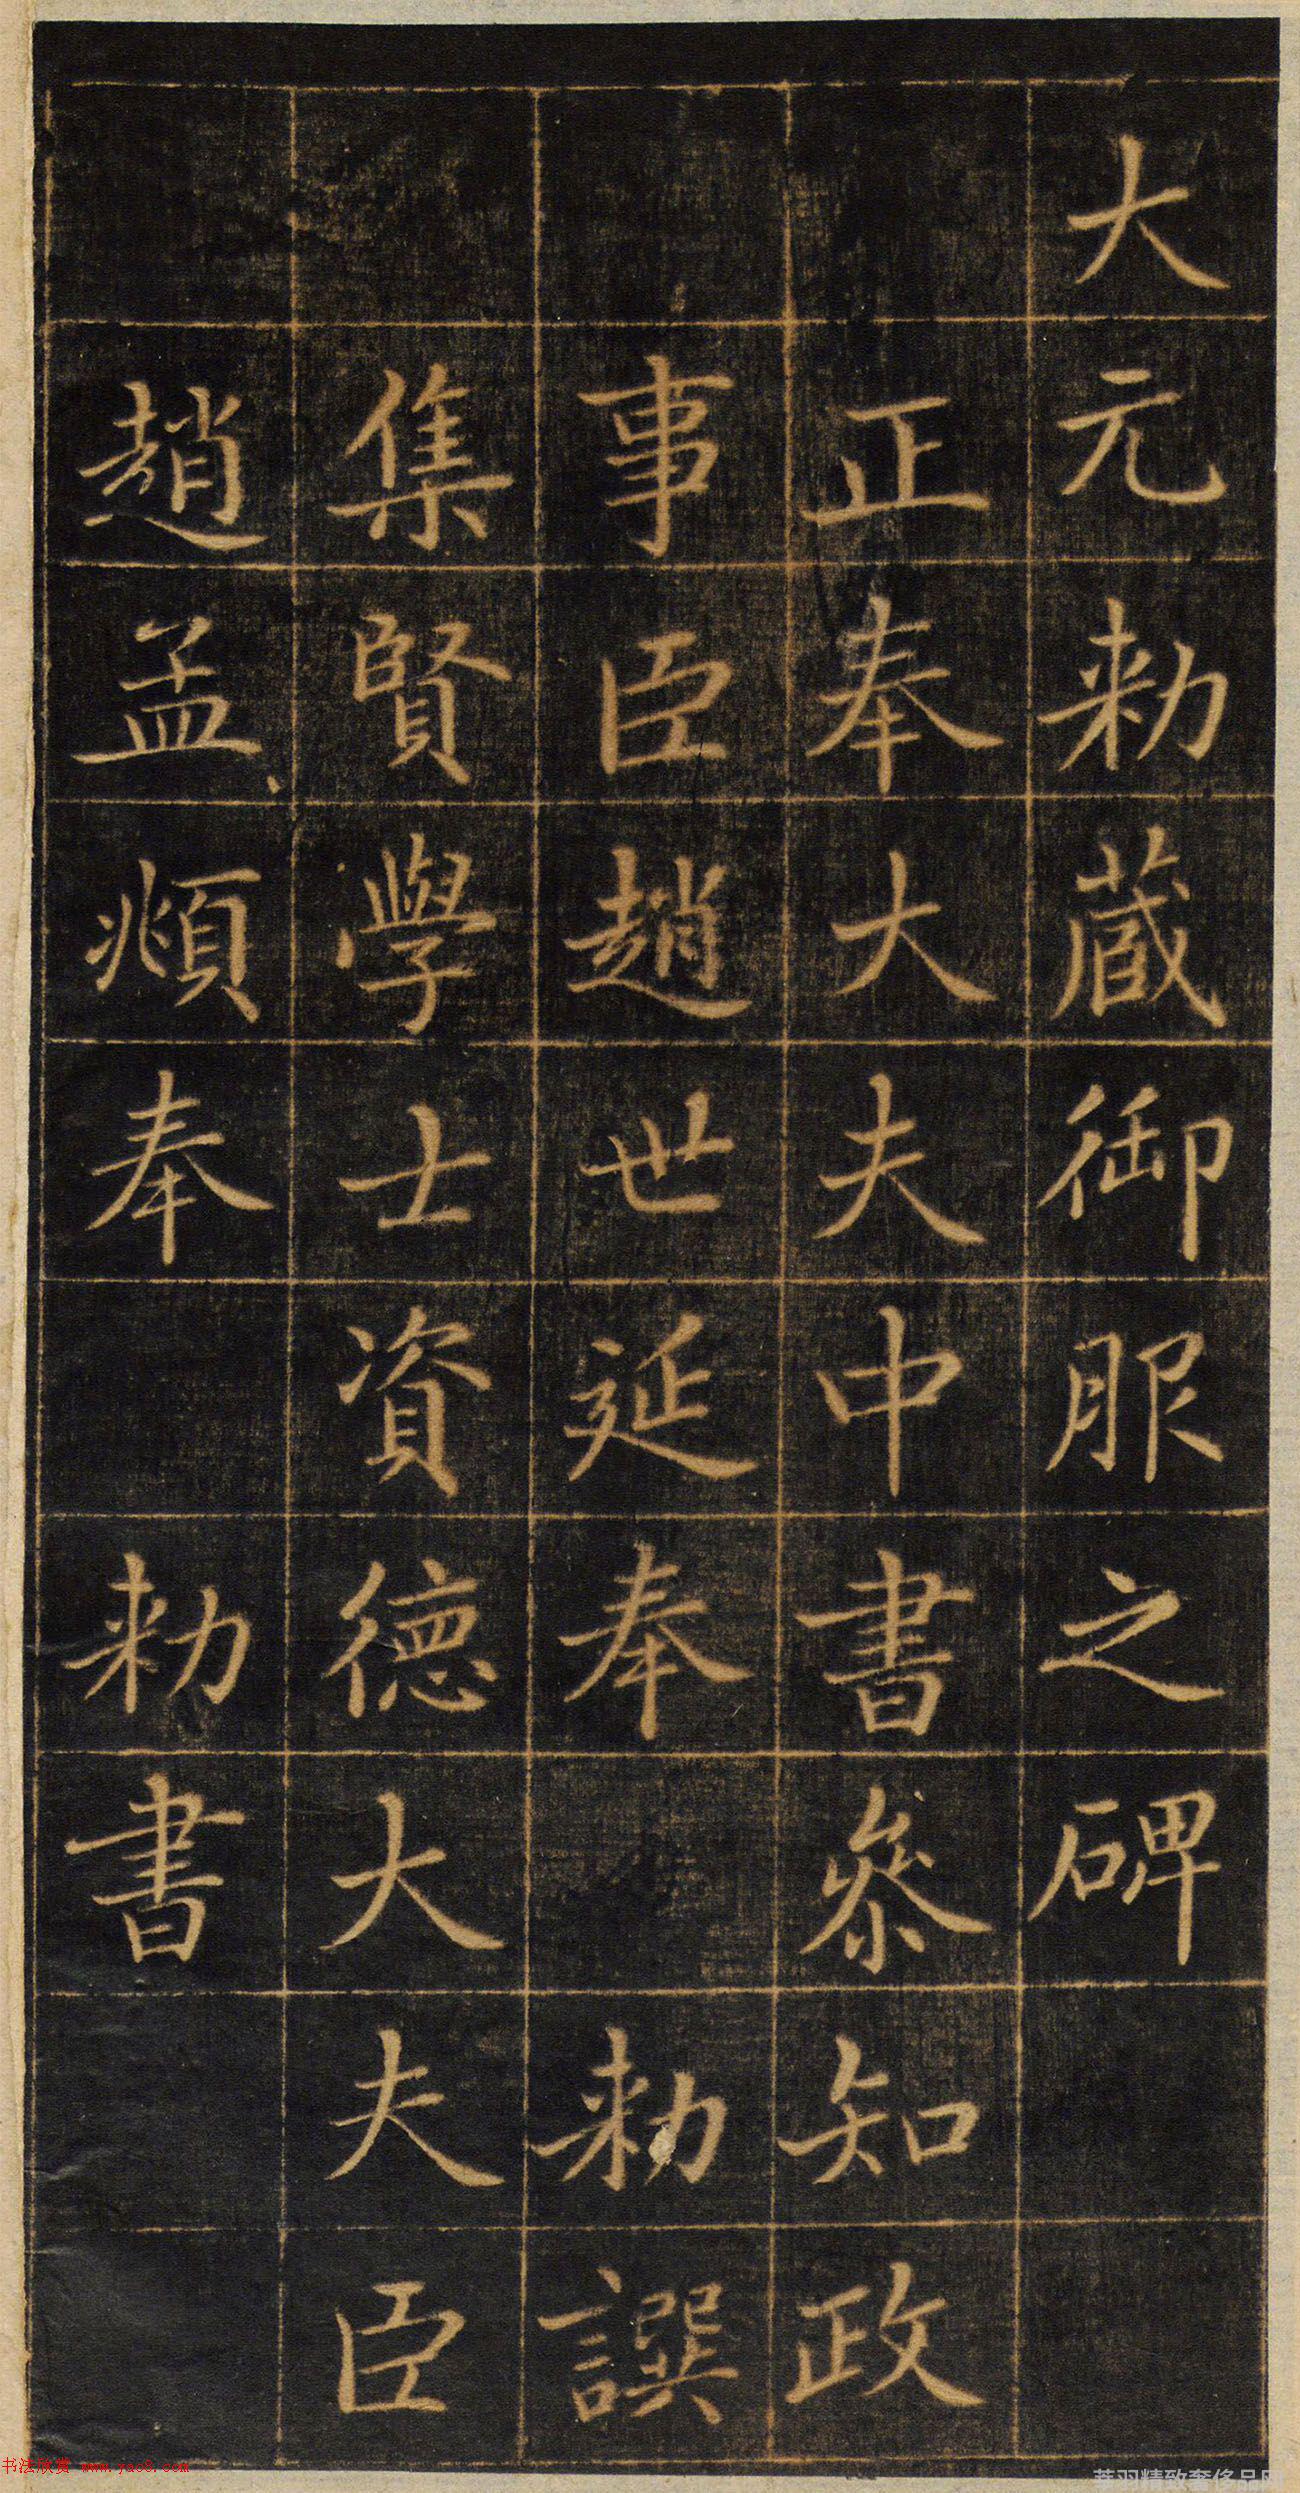 大元勑蔵御服之碑
正奉大夫中書叅知政
事臣趙世延奉勑譔
集賢學士資德大夫臣
趙孟頫奉勑書
书法欣赏 www.yac8.com